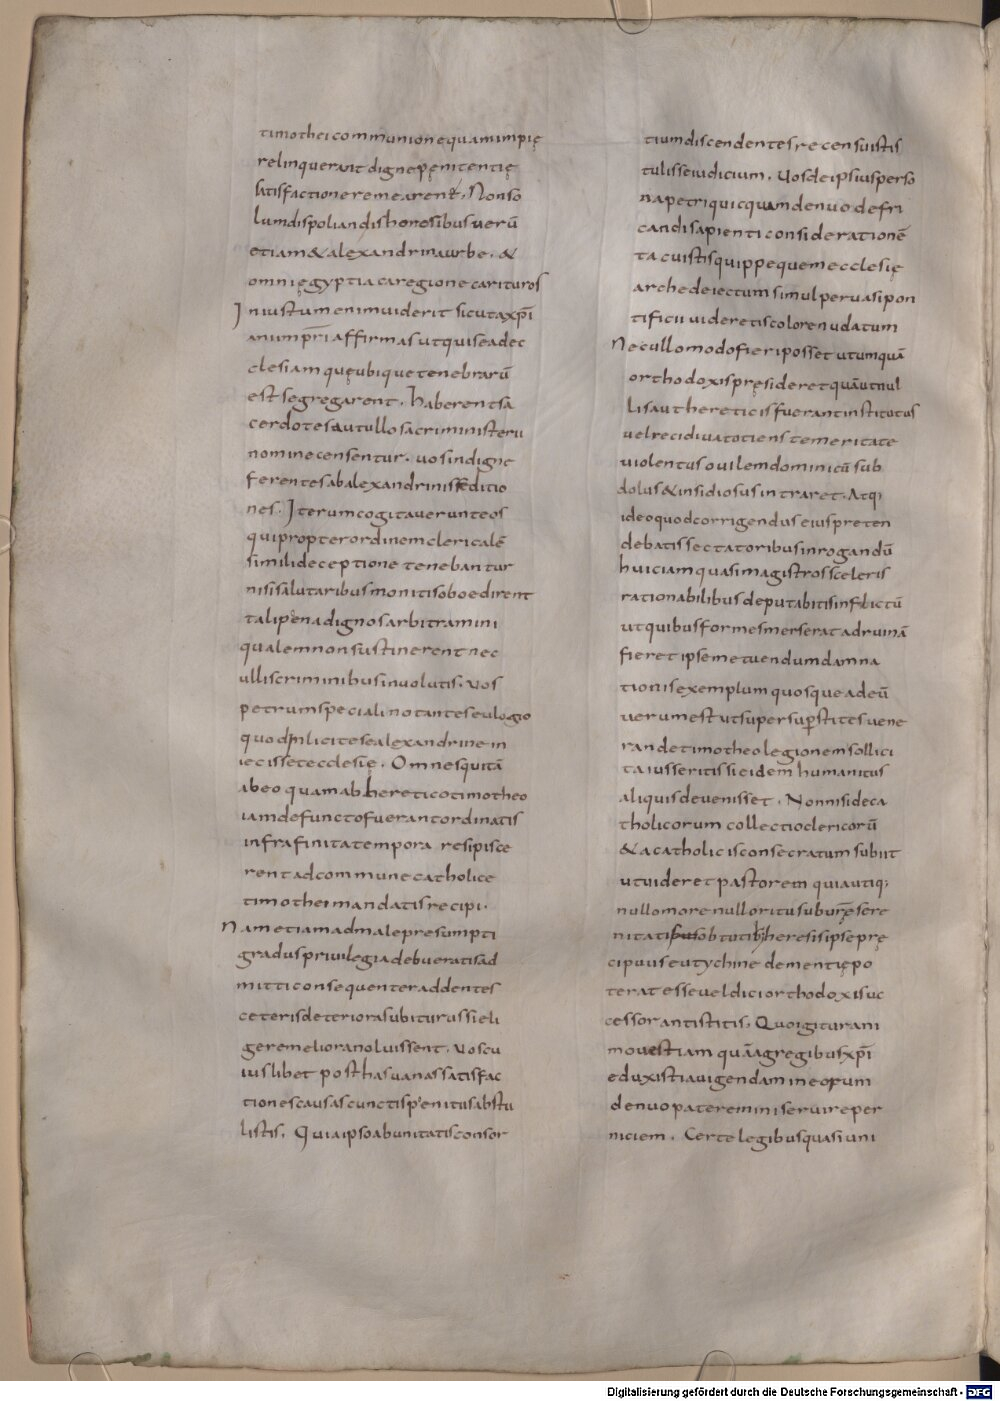 timothei communione quam impię
relinquerant digne pęnitentię
satisfactione remearent. Non so
lum dispoliandis honoribus uerū
etiam & alexandrina urbe. &
omni ęgyptiaca regione carituros
Iniustum enim uiderit sicuta xp̄i
anum pr̄ı affirmas ut qui se ad ec
clesiam quę ubique tenebrarū
est segregarent. haberent sa
cerdotes aut ullo sacri ministerii
nomine censentur. uos indigne
ferentes ab alexandrinis seditio
nes. Iterum cogitauerunt eos
qui propter ordinem clericalē
simili deceptione tenebantur
nisi salutaribus monitis oboedirent
tali pena dignos arbitramini
qualem non sustinerent nec
ullis criminibus inuolutis. uos
petrum speciali notantes eulogio
quod se alexandrine in
iecisset ecclesię. Omnes qui tā
ab eo quam ab heretico timotheo
iam defuncto fuerant ordinatis
infra finita tempora resipisce
rent ad commune catholice
timothei mandatis recipi.
Nam etiam ad male presumpti
gradus priuilegia debueratis ad
mitti consequenter addentes
ceteris deteriora subiturus si eli
gere meliora noluissent. uos cu
iuslibet post has uanas satisfac
tiones causas cunctis penitus abstu
listis. Quia ipso ab unitatis consor
tium discendentes recensuistis
tulisse iudicium. Uos de ipsius perso
na petri quicquam denuo defri
candi sapienti considerationē
tacuistis quippe quem ecclesię
arche deiectum simul peruasi pon
tificii uideretis colore nudatum
Nec ullo modo fieri posset ut umquā
orthodoxis pręsideret quā ut nul
lis aut hereticis fuerant institutus
uel recidiua totiens temeritate
uiolentus ouilem dominicū sub
dolus & insidiosus intraret. Atq;
ideo quod corrigendus eius preten
debatis sectatoribus inrogandū
huic iam quasi magistros sceleris
rationabilibus deputabitis inflictū
ut quibus formes merserat ad ruinā
fieret ipse metuendum damna
tionis exemplum quosque adeū
uerum est ut super superstites uene
rande timotheo legionem sollici
ta iusseritis si eidem humanitus
aliquis deuenisset. Non nisi de ca
tholicorum collectio clericorū
& a catholicis consecratum subiit
ut uideret pastorem qui a utiq;
nullo more nullo ritu sub urę sere
nitati ob tutib; heresis ipse prę
cipuus eutychine dementię po
terat esse uel dici orthodoxi suc
cessor antistitis. Quo igitur ani
mo uestiam quā a gregibus xp̄i
eduxisti a uigendam in eorum
denuo pateremini seruire per
niciem. Certe legibus quasi uni
Digitalisierung gefördert durch die Deutsche Forschungsgemeinschaft - DFG